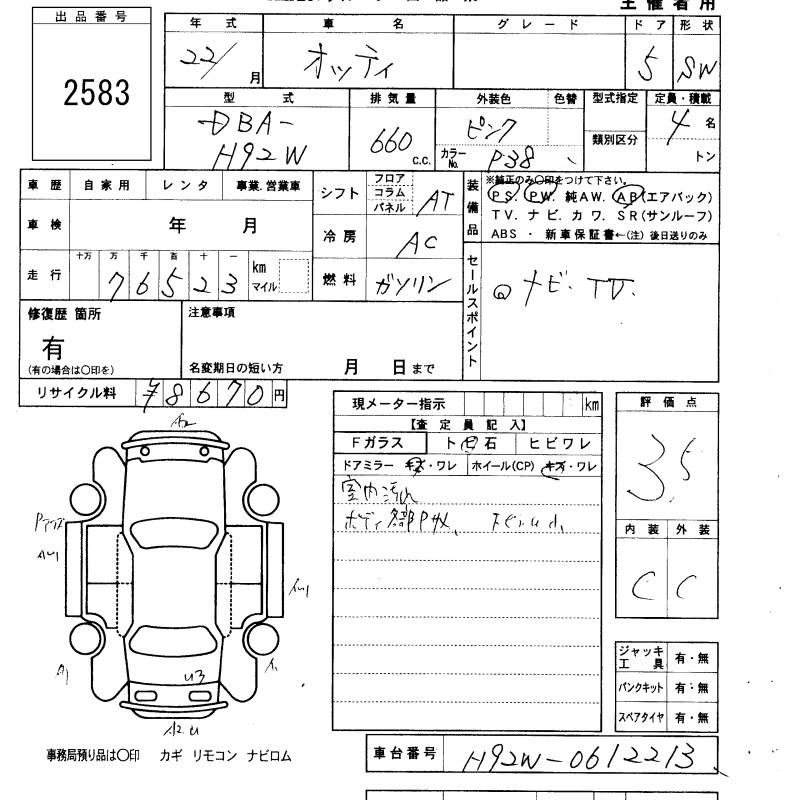 主催者用
出品番号
2583
年式 車名 グレード ドア 形状
22/ 月 オッティ 5 SW
型式 排気量 外装色 色替 型式指定 定員・積載
DBA-
H92W 660 c.c. ピンク
カラーNo. P38 類別区分 4 名
トン
車歴 自家用 レンタ 事業・営業車
車検 年 月
走行 十万 万 千 百 十 一
76523 km
マイル
シフト フロア コラム パネル AT
冷房 AC
燃料 ガソリン
装備品 ※純正のみ〇印をつけて下さい。
PS. PW. 純AW. AB(エアバック)
TV. ナビ. カワ. SR(サンルーフ)
ABS ・ 新車保証書←(注) 後日送りのみ
セールスポイント
ナビ・TV.
修復歴 箇所
有
(有の場合は〇印を)
注意事項
名変期日の短い方 月 日まで
リサイクル料 ¥8670 円
現メーター指示 km
【査定員記入】
Fガラス ト ビ 石 ヒビワレ
ドアミラー キズ・ワレ ホイール(CP) キズ・ワレ
室内汚れ
評価点
3.5
内装 外装
C C
A2
A1
U3
ジャッキ工具 有・無
パンクキット 有・無
スペアタイヤ 有・無
事務局預り品は〇印 カギ リモコン ナビロム
車台番号 H92W-0612213